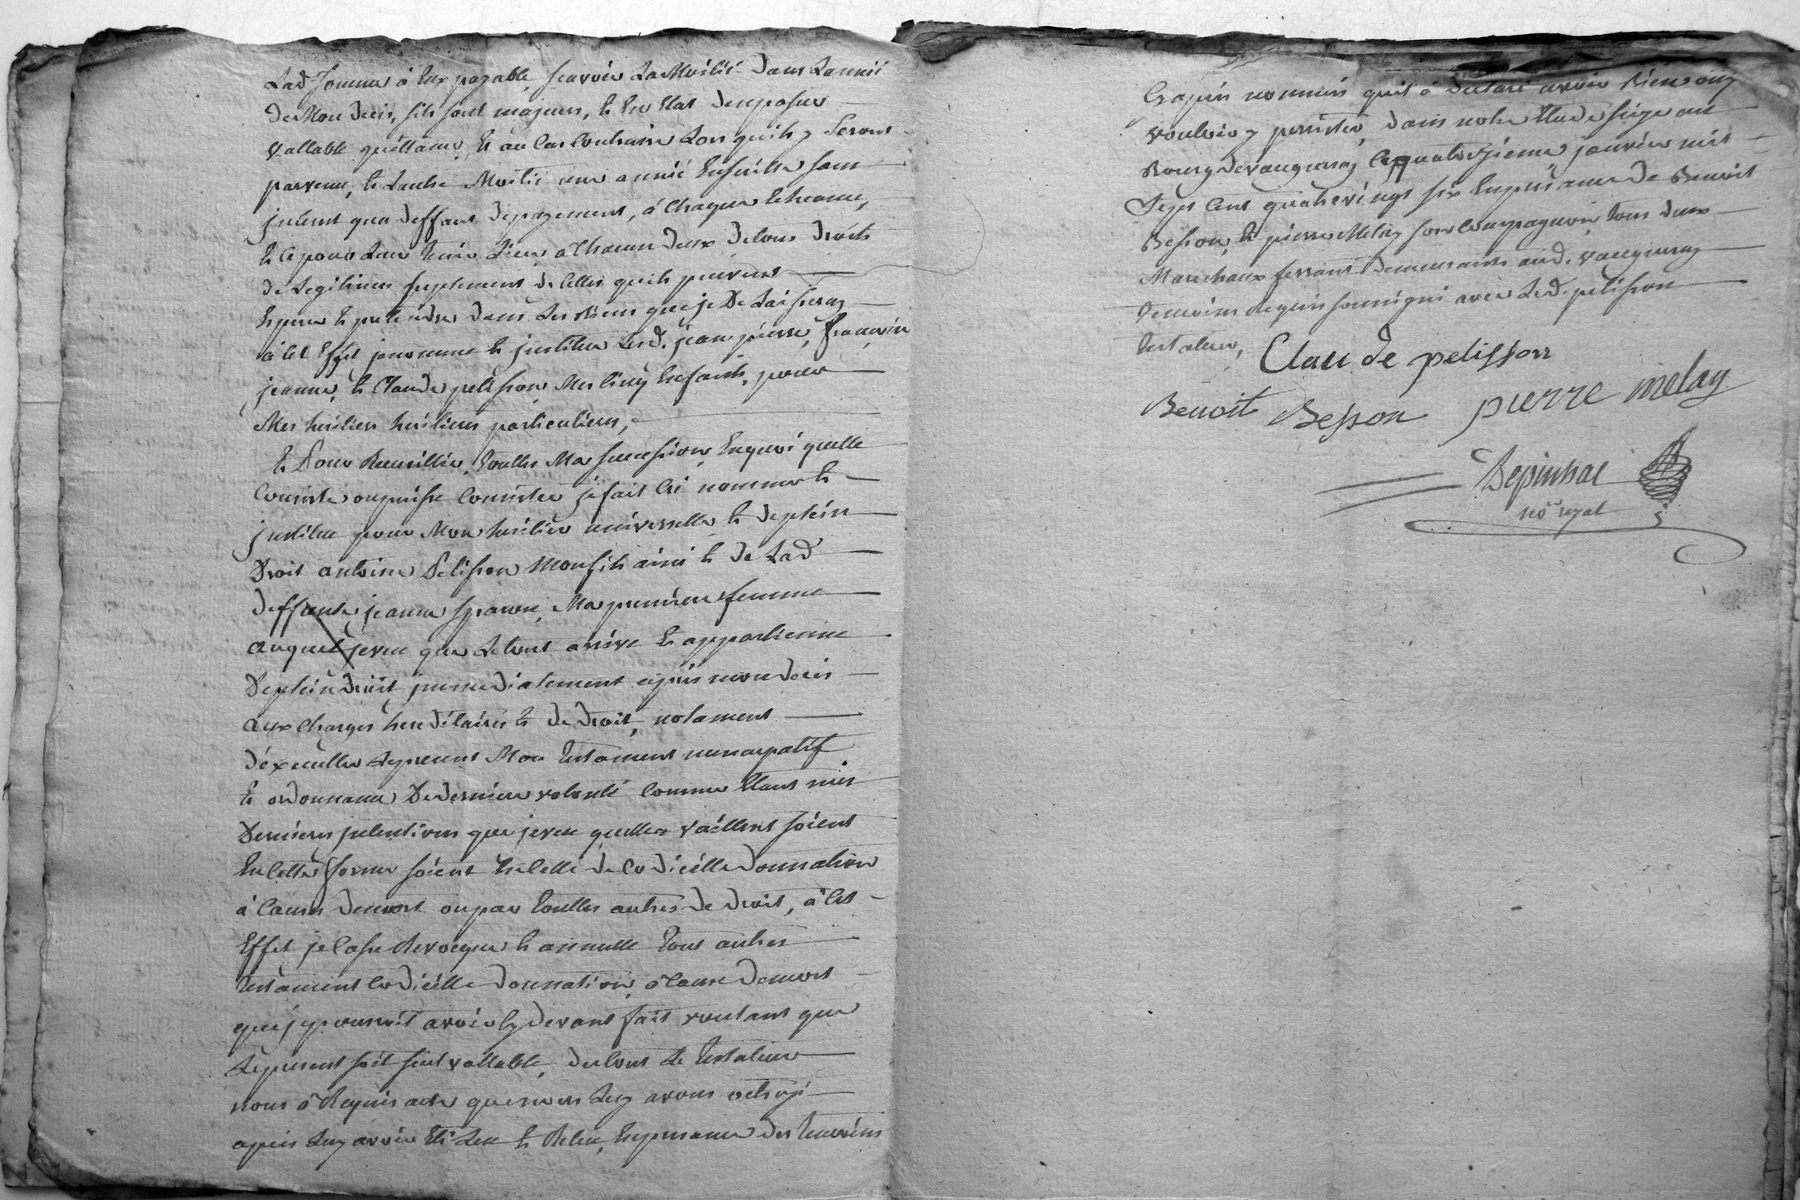 Lad. somme à Eux payable scavoir La Moitié dans Lannée
de Mon deces, sils sont majeurs, et En Etat den passer
vallable quittance, et au cas contraire Lors quils y seront
parvenu, et Lautre Moitié une année Ensuitte sans
jnterest qua deffaut de payement, à Chaque Echeance,
et ce pour Leur tenir Lieu à Chacun deux de tous droits
de Legitimes suplement de Celles quils peuvent
Esperer et pretendre dans Les Biens que je De Laisseray
à Cet Effet je nomme et jnstitue Lesd. jean pierre, françois
jeanne, et Claude pelisson, Mes Cinq Enfants, pour
Mes heritiers heritiers particuliers,
Et Pour Recueillir, touttes Ma succession, En quoi quelle
Consiste ou puisse Consister je fait Cré nomme et
jnstitue pour Mon heritier universelle et de plein
Droit antoine Pelisson Mon fils ainé et de Lad.
deffunte jeanne Mapremiere femme
auquel je veu que Le tout arrive et appartienne
De plein droit jmmediatement après mon deces
aux Charges hereditaires et de droit, notament
déxecutter Le present Mon testament nuncupatif
et ordonnance De derniere volonté Comme Etant mes
Dernieres jntentions que je veu quelles vaillent soient
En Cette forme soient En Celle de Codicille donnation
à Causes de mort ou par touttes autres de droit, à Cet
Effet je Casse Revocque et annulle tous autres
testament Codicille donnation à Cause de mort
que je pourroit avoir Cy devant fait voulant que
Le present soit seul vallable, du tout Le testateur
nous à Requis acte que nous Luy avons octroyé
après Luy avoir Eté Leu et Releu, En presence des temoins
Cy après nommés quil à declaré avoir Bien ouy
vouloir y persister, dans notre Etude sise au
Bourg de vaugneray Le quatorzieme janvier mil
Sept Cent quatrevingt six En presence de Benoit
Besson, et pierre Melay son Compagnon tous deux
Marechaux ferrants demeurants aud. vaugneray
temoins Requis soussigné avec Led. pelisson
testateur,
Claude pelisson
Benoit Besson pierre melay
Depinhac
nore. royal